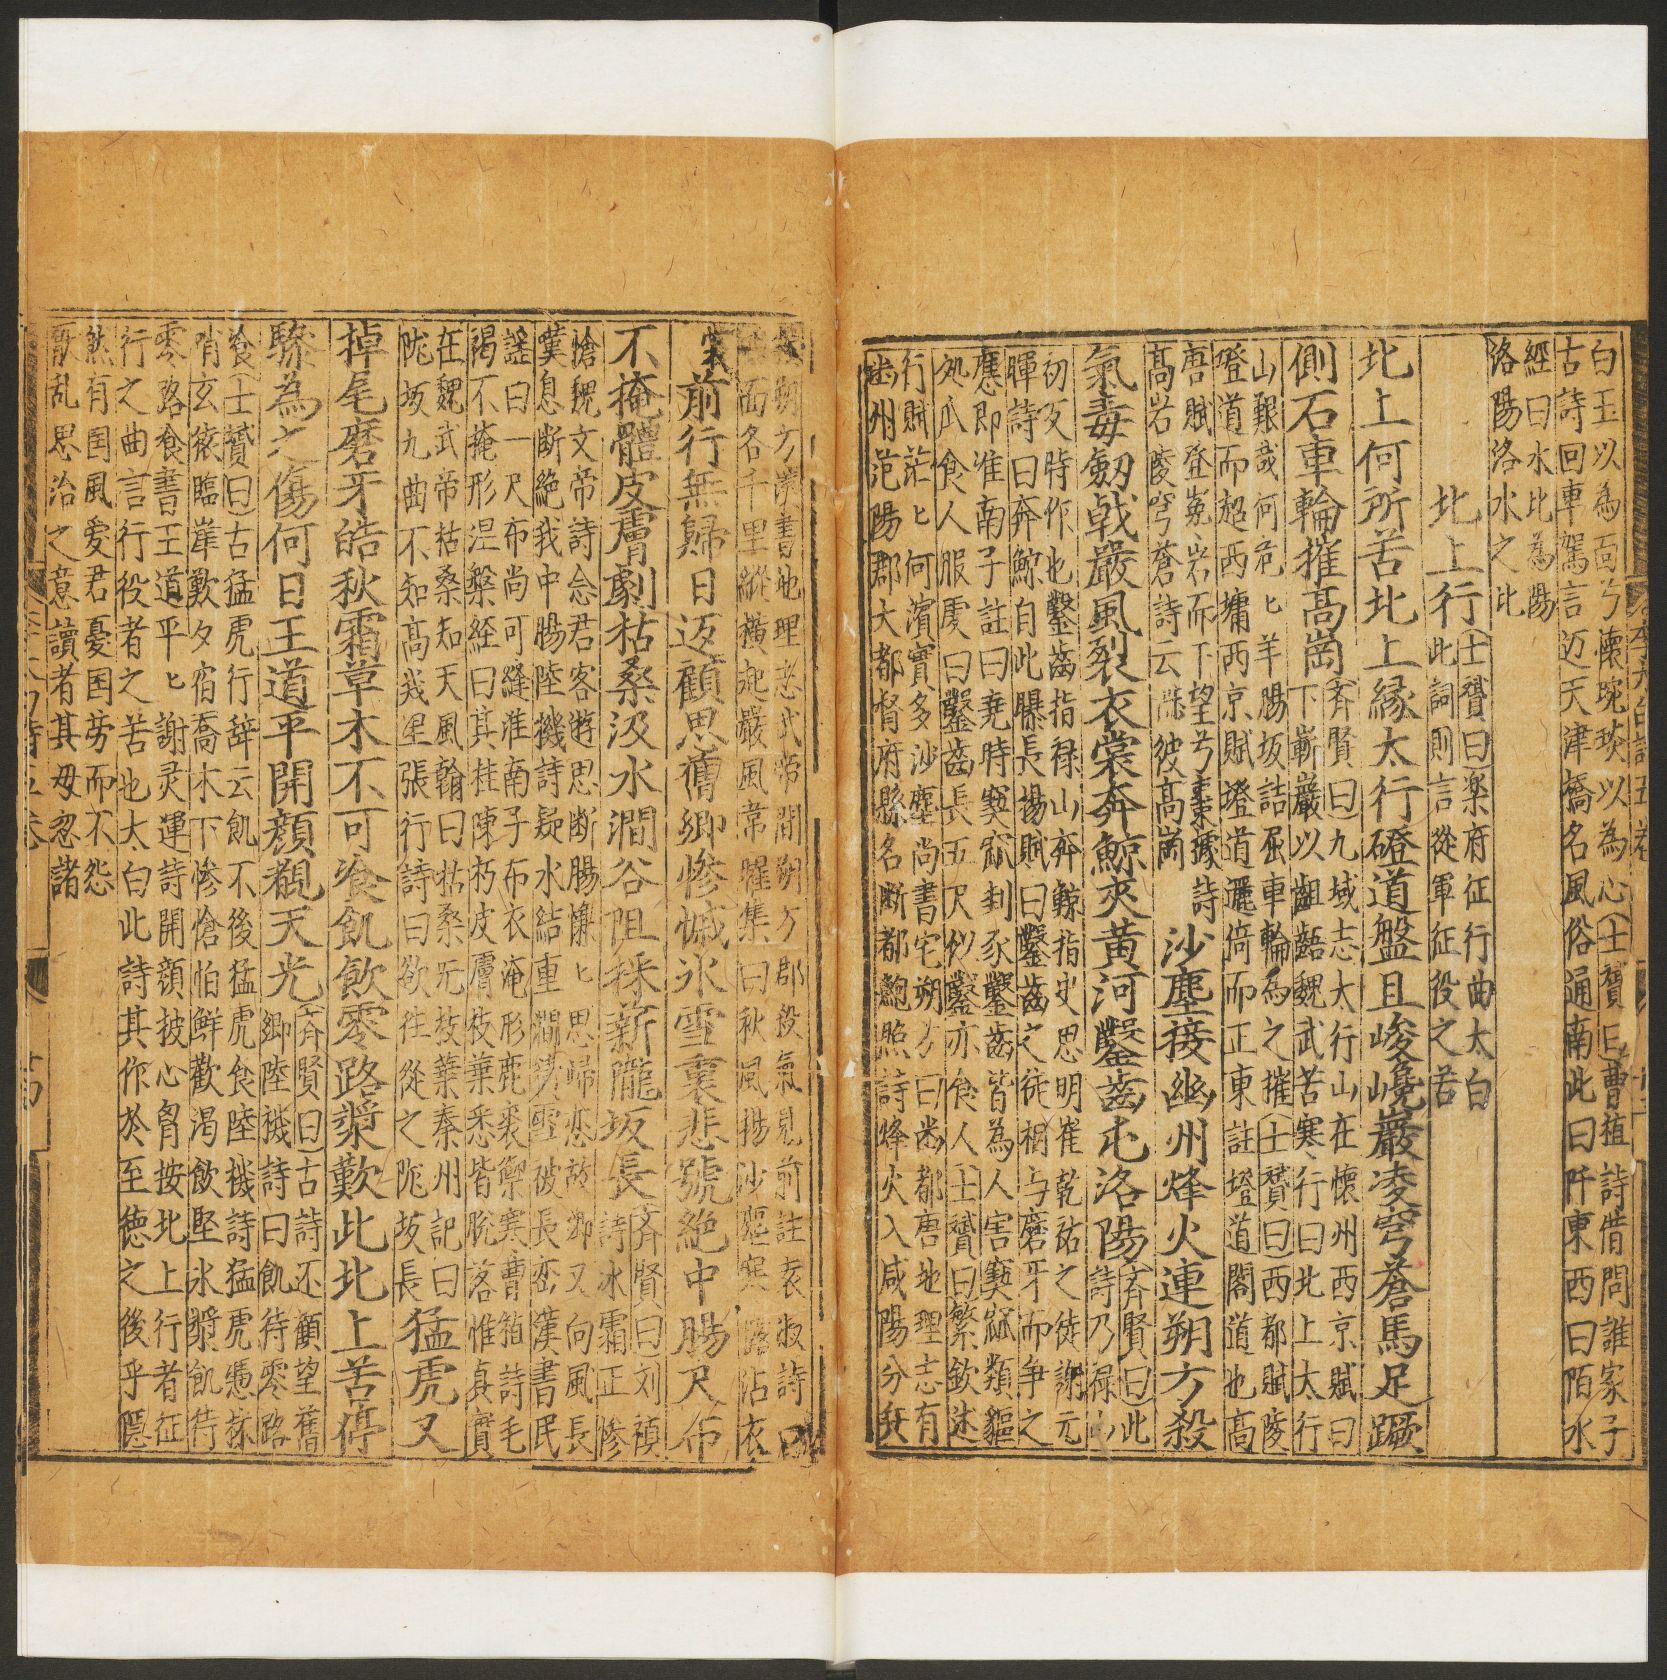 白玉以為面兮懷琬琰以為心(士贇曰)曹植詩借問誰家子
古詩回車駕言邁天津橋名風俗通南北曰阡東西曰陌水
經曰水北為陽
洛陽洛水之北
北上行(士贇曰)樂府征行曲太白
此詞則言從軍征役之苦
北上何所苦北上緣太行磴道盤且峻巉巖凌穹蒼馬足蹶
側石車輪摧高崗(齊賢曰)九域志太行山在懷州西京賦曰
下嶄巖以齟齬魏武苦寒行曰北上太行
山艱哉何危〻羊腸坂詰屈車輪為之摧(士贇曰)西都賦陵
磴道而超西墉西京賦墱道邐倚而正東註墱道閣道也高
唐賦登巉岩而下望兮
高岩陵穹蒼詩云陟彼高崗 沙塵接幽州烽火連朔方殺
氣毒劒戟嚴風裂衣裳奔鯨夾黃河鑿齒屯洛陽(齊賢曰)此
詩乃祿山
初反時作也鑿齒指祿山奔鯨指史思明崔乾祐之徒謝元
暉詩曰奔鯨自此曝長揚賦曰鑿齒之徒相与磨牙而爭之
應即淮南子註曰堯時窫窳封豕鑿齒皆為人害窫窳類貙
処爪食人服虔曰鑿齒長五尺似鑿亦食人(士贇曰)繁欽述
行賦茫〻何濱實多沙塵尚書宅朔方曰幽都唐地理志有
幽州范陽郡大都督府縣名断都鮑照詩烽火入咸陽分兵
朔方漢書地理志武帝開朔方郡殺氣見前註袁淑詩曰
面名千里縱橫起嚴風常曜集曰秋風揚沙塵寒露沾衣
裳前行無歸日返顧思舊鄉慘慽氷雪裏悲號絕中腸尺布
不掩體皮膚劇枯桑汲水澗谷阻採薪隴坂長(齊賢曰)刘禎
詩氷霜正慘
愴魏文帝詩念君客遊思断腸慊〻思歸恋故鄉又向風長
嘆息断絕我中腸陸機詩凝水結重澗積雪被長巒漢書民
謠曰一尺布尚可縫淮南子布衣淹形鹿裘禦寒曹植詩毛
褐不掩形涅槃經曰其桂陳朽皮膚枝葉悉皆脫落惟真實
在魏武帝枯桑知天風翰曰枯桑无枝葉秦州記曰
隴坂九曲不知高幾里張行詩曰欲往從之隴坂長 猛虎又
掉尾磨牙皓秋霜草木不可飡飢飲零路漿歎此北上苦停
驂為之傷何日王道平開顏覩天光(齊賢曰)古詩还顧望舊
鄉陸機詩曰飢待零路
飡(士贇曰)古猛虎行辞云飢不後猛虎食陸機詩猛虎憑林
哨玄猿臨崖歎夕宿喬木下慘愴怕鮮歡渴飲堅氷漿飢待
零路食書王道平〻謝灵運詩開顔披心胷按北上行者征
行之曲言行行役者之苦也太白此詩其作於至德之後乎隱
然有国風愛君憂国劳而不怨
厭乱思治之意讀者其毋忽諸